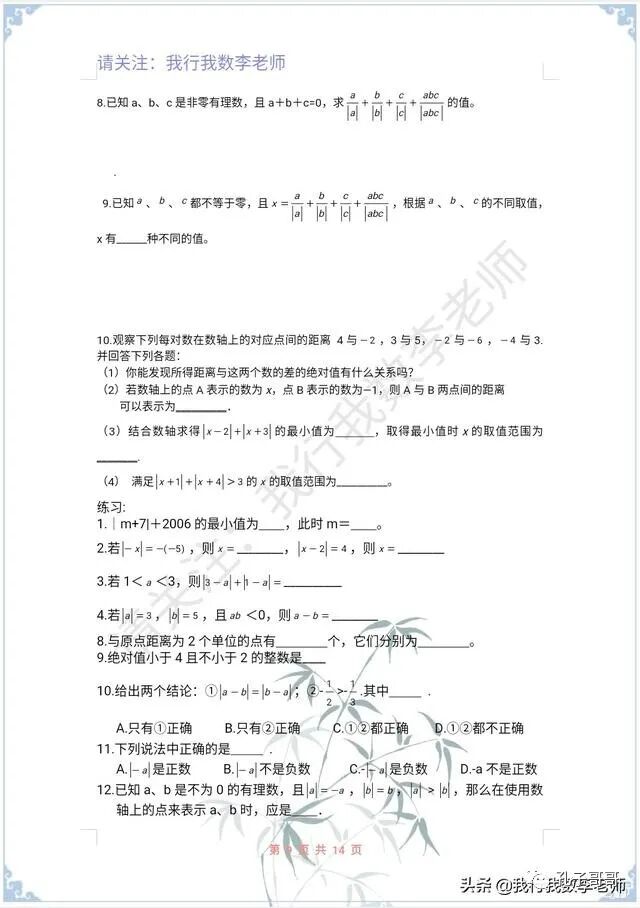 请关注：我行我数李老师
8.已知 a、b、c 是非零有理数，且 a＋b＋c=0，求 a/|a| + b/|b| + c/|c| + abc/|abc| 的值。
.
9.已知 a 、 b 、 c 都不等于零，且 x = a/|a| + b/|b| + c/|c| + abc/|abc| ，根据 a 、 b 、 c 的不同取值，
x 有_____种不同的值。
10.观察下列每对数在数轴上的对应点间的距离 4 与－2，3 与 5，－2 与－6，－4 与 3.
并回答下列各题：
（1）你能发现所得距离与这两个数的差的绝对值有什么关系吗？
（2）若数轴上的点 A 表示的数为 x，点 B 表示的数为—1，则 A 与 B 两点间的距离
可以表示为________．
（3）结合数轴求得 |x－2|+|x＋3| 的最小值为______，取得最小值时 x 的取值范围为
______.
（4） 满足 |x＋1|+|x＋4|＞3 的 x 的取值范围为________。
练习:
1.｜m+7|＋2006 的最小值为____，此时 m＝____。
2.若 |－x|＝－(－5) ，则 x＝_______，|x－2|＝4，则 x＝_______
3.若 1＜a＜3，则 |3－a|+|1－a|＝_________
4.若 |a|＝3，|b|＝5，且 ab＜0，则 a－b＝_______
8.与原点距离为 2 个单位的点有________个，它们分别为________。
9.绝对值小于 4 且不小于 2 的整数是____
10.给出两个结论：①|a－b|＝|b－a|；②-1/2 >-1/3 .其中_____ .
A.只有①正确 B.只有②正确 C.①②都正确 D.①②都不正确
11.下列说法中正确的是_____ .
A.|－a|是正数 B.|－a|不是负数 C.-|－a|是负数 D.-a 不是正数
12.已知 a、b 是不为 0 的有理数，且|a|＝－a，|b|＝b，|a|＞|b|，那么在使用数
轴上的点来表示 a、b 时，应是____．
第 9 页 共 14 页
请关注：我行我数李老师
孔子哥哥
头条 @我行我数李老师